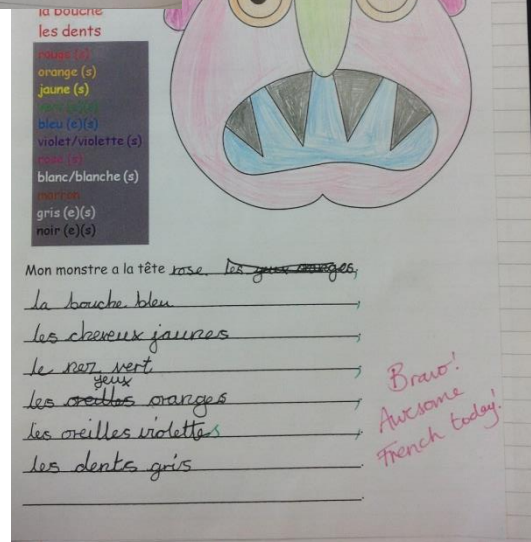 la bouche
les dents
rouge (s)
orange (s)
jaune (s)
vert (e)(s)
bleu (e)(s)
violet/violette (s)
rose (s)
blanc/blanche (s)
marron
gris (e)(s)
noir (e)(s)
Mon monstre a la tête rose. les yeux oranges,
la bouche bleu,
les cheveux jaunes,
le nez vert,
yeux
les oreilles oranges,
les oreilles violettes,
les dents gris.
Bravo!
Awesome
French today!